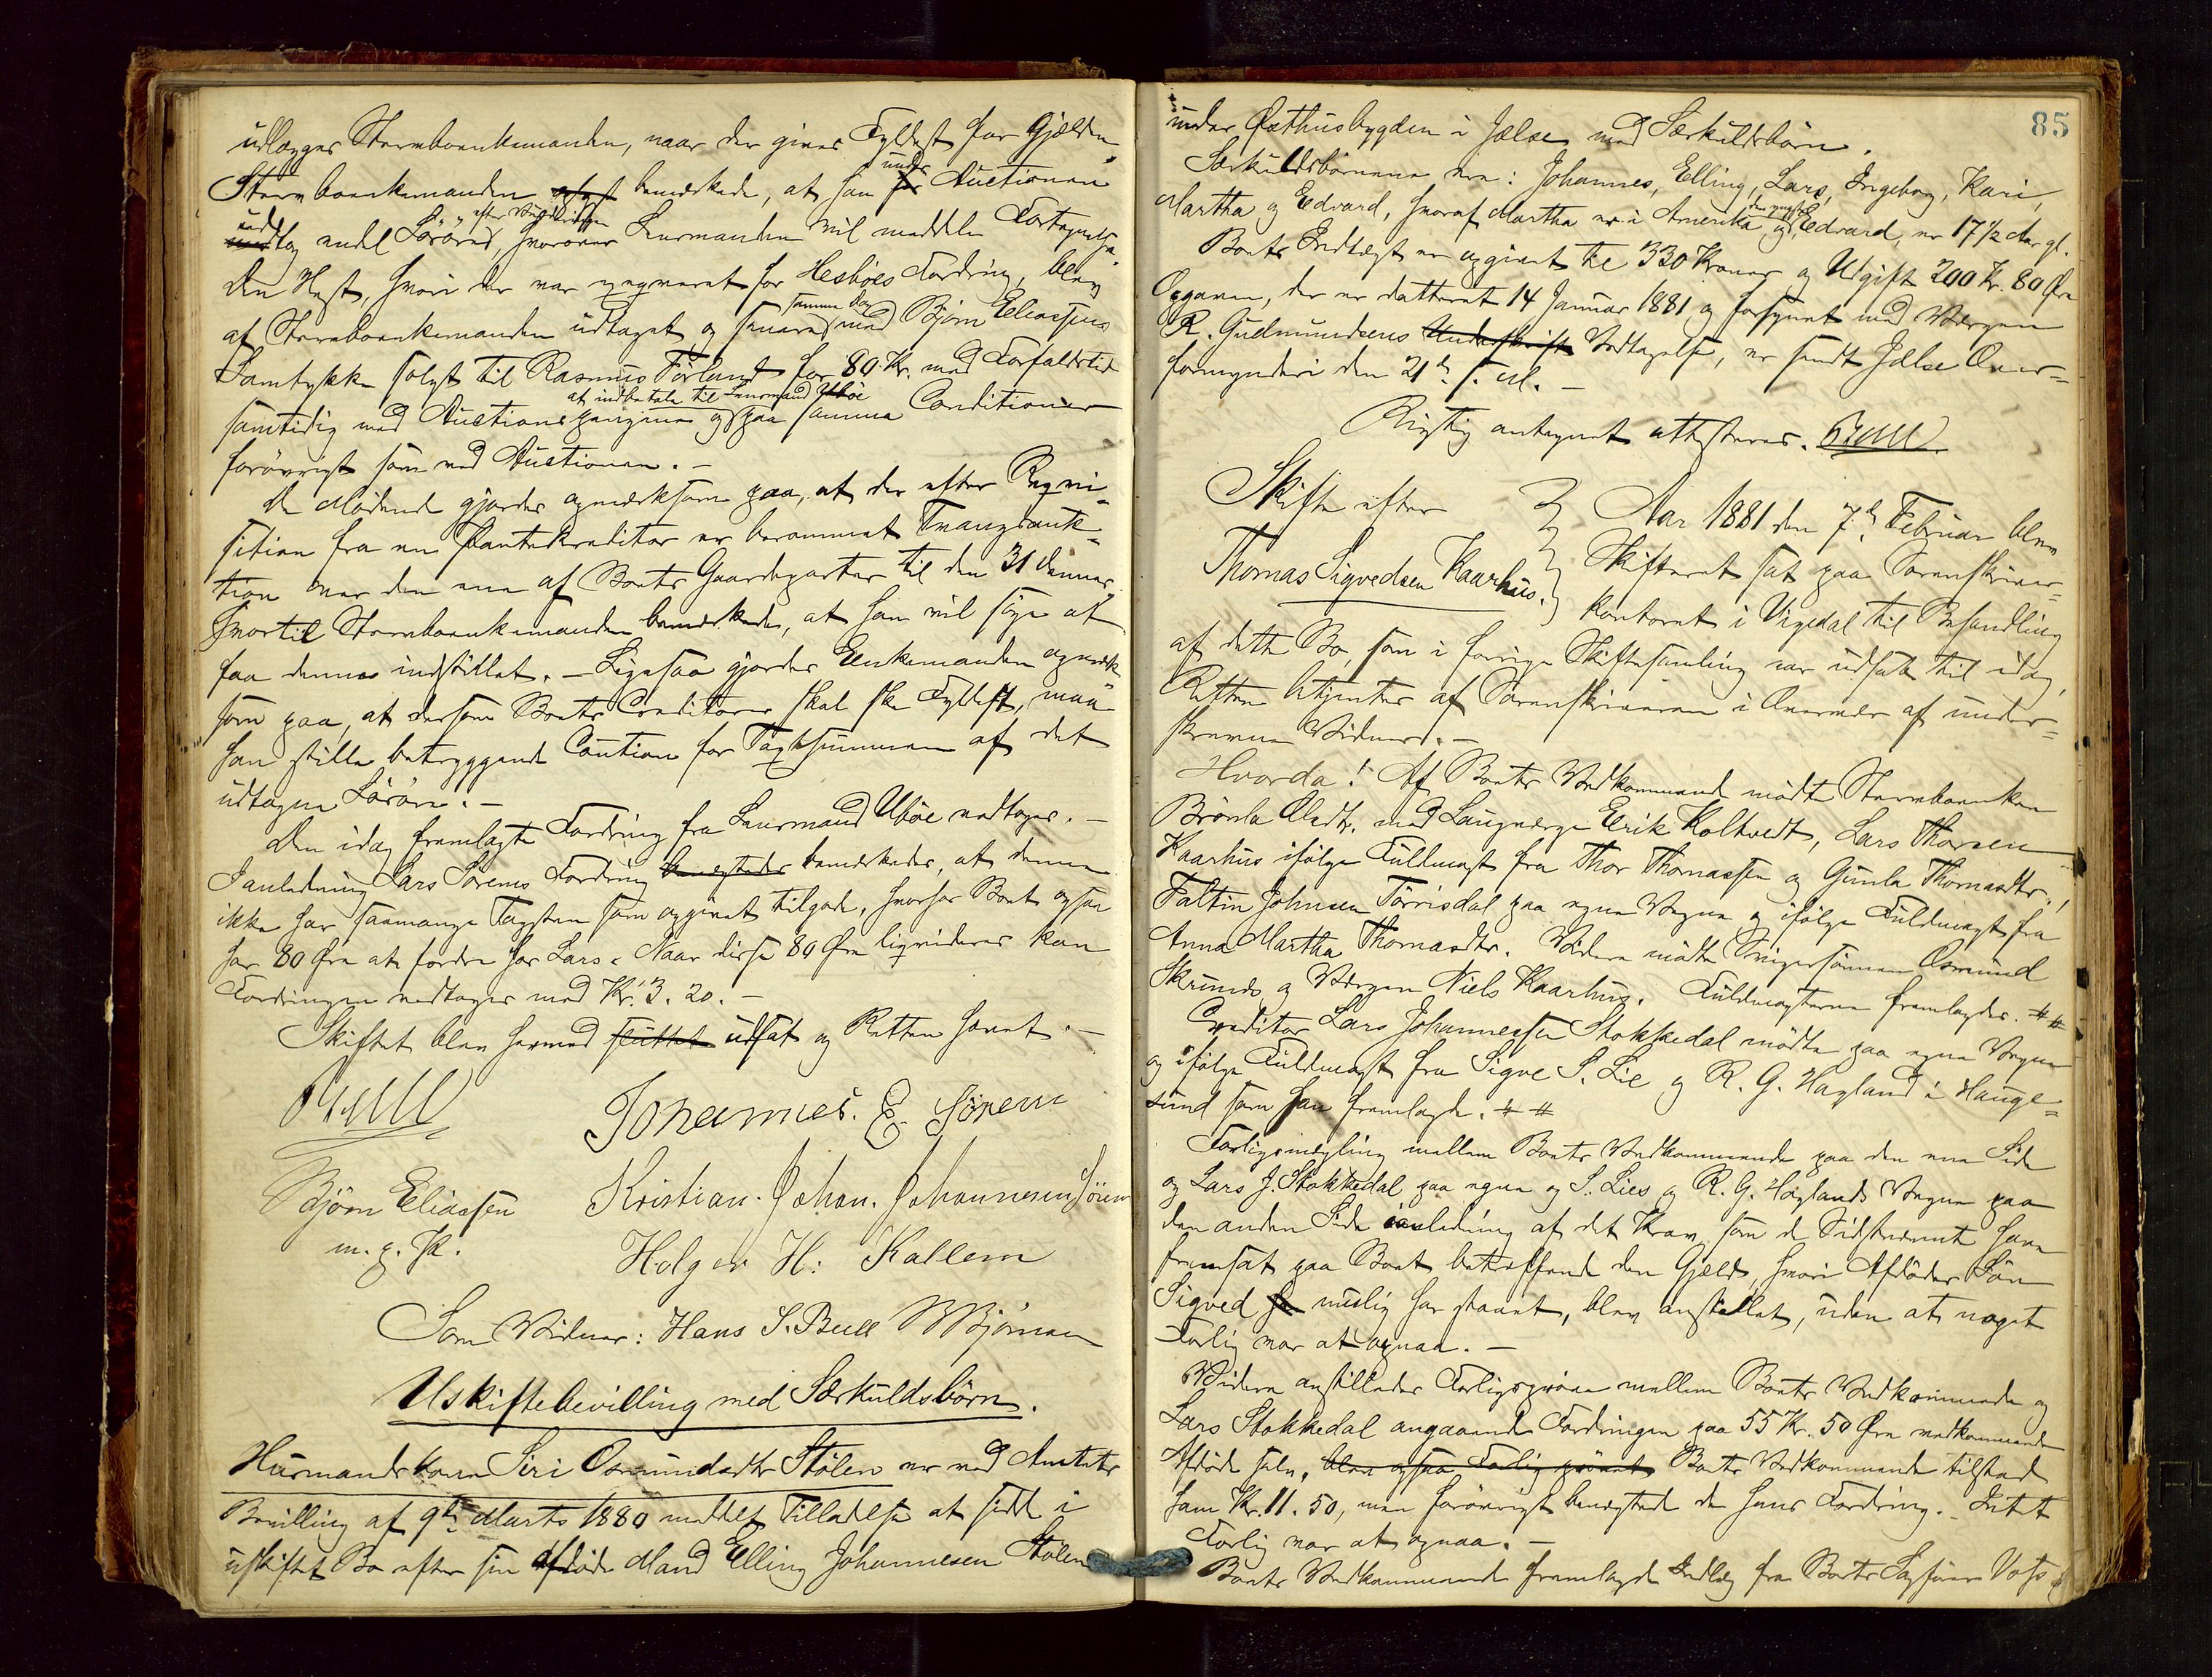 udlægges Stervboenkemanden, naar der gives Fyldest for Gjælden.
Stervboenkemanden bemærkede, at han under Auctionen
udtog endel Løsøre efter Vurderingen, hvorover Lensmanden vil meddele Fortegnelse.
Den Hest, hvori der var exeqveret for Hesbøes Fordring, blev
af Stervboenkemanden udtaget og senere samme Dag med Bjørn Eliassens
Samtykke solgt til Rasmus Førland for 80 Kr. med Forfaldstid
samtidig med Auctionspengene at indbetale til Lensmand Ubøe og paa samme Conditioner
forøvrigt som ved Auctionen. —
De Mødende gjordes opmærksom paa, at der efter Reqvi-
sition fra en Pantekreditor er berammet Tvangsauk-
tion over den ene af Boets Gaardeparter til den 31 dennes,
hvortil Stervboenkemanden bemærkede, at han vil søge at
faa denne indstillet. — Ligesaa gjordes Enkemanden opmærk-
som paa, at dersom Boets Creditorer skal ske Fyldest, maa
han stille betryggende Caution for Taxtsummen af det
udtagne Løsøre. —
Den idag fremlagte Fordring fra Lensmand Ubøe vedtoges. —
I anledning Lars Sørems Fordring benegtedes bemærkedes, at denne
ikke har saamange Tagsten som opgivet tilgode, hvorfor Boet ogsaa
har 80 Øre at fordre hos Lars. Naar disse 80 Øre liqvideres kan
Fordringen vedtages med Kr. 3. 20. —
Skiftet blev hermed sluttet udsat og Retten hævet. —
Bull Johannes. E. Sørem
Bjørn Eliassen Kristian. Johan. Johannesen Sørem
m. p. P. Holger H: Kallem
Som Vidner: Hans S. Bull B Bjørnsen
Uskiftebevilling med Særkuldsbørn.
Husmandskone Siri Osmundsdtr Stølen er ved Amtets
Bevilling af 9de Marts 1880 meddelt Tilladelse at sidde i
uskiftet Bo efter sin afdøde Mand Elling Johannesen Stølen
85
under Østhusbygden i Jelse med Særkuldsbørn.
Særkuldsbørnene ere: Johannes, Elling, Lars, Ingeborg, Kari,
Martha og Edvard, hvoraf Martha er i Amerika og den yngste Edvard, er 17 1/2 Aar gl.
Boets Indtægt er opgivet til 330 Kroner og Udgift 200 Kr. 80 Øre
Opgaven, der er datteret 14 Januar 1881 og forsynet med Værgen
R. Gudmundsens Underskrift Vedtagelse, er sendt Jelse Over-
formynderi den 21de s. M. —
Rigtig antegnet attesteres. Bull
Skifte efter
Thomas Sigvedsen Kaarhus.
Aar 1881 den 7de Februar blev
Skifteret sat paa Sorenskriver-
kontoret i Vigedal til Behandling
af dette Bo, som i forrige Skiftesamling var udsat til idag,
Retten betjentes af Sorenskriveren i Overvær af under-
skrevne Vidner. —
Hvorda! Af Boets Vedkommende mødte Stervboenken
Brønla Olsdtr. med Laugværge Erik Koltvedt, Lars Thorsen
Kaarhus ifølge Fuldmagt fra Thor Thomassen og Gunla Thomasdtr.,
Faltin Johnsen Tørrisdal paa egne Vegne og ifølge Fuldmagt fra
Anna Martha Thomasdtr. Videre mødte Svigersønnen Osmund
Skrunes og Værgen Niels Kaarhus. Fuldmagterne fremlagdes. # #
Creditor Lars Johannessen Stokkedal mødte paa egne Vegne
og ifølge Fuldmagt fra Sigve S. Lie og R. G. Hagland i Hauge-
sund som han fremlagde. # #
Forligsmægling mellem Boets Vedkommende paa den ene Side
og Lars J. Stokkedal paa egne og S. Lies og R. G. Haglands Vegne paa
den anden Side i anledning af det Krav, som de Sidstnævnte have
fremsat paa Boet betræffende den Gjæld, hvori Afdødes Søn
Sigved muelig har staaet, blev anstillet, uden at noget
Forlig var at opnaa. —
Videre anstilledes Forligsprøve mellem Boets Vedkommende og
Lars Stokkedal angaaende Fordringen paa 55 Kr. 50 Øre vedkommende
Afdøde selv, blev ogsaa Forlig prøvet Boets Vedkommende tilstod
ham Kr. 11. 50, men forøvrigt benegtede de hans Fordring. Intet
Forlig var at opnaa. —
Boets Vedkommende fremlagde Indlæg fra Boets Sagfører Voss